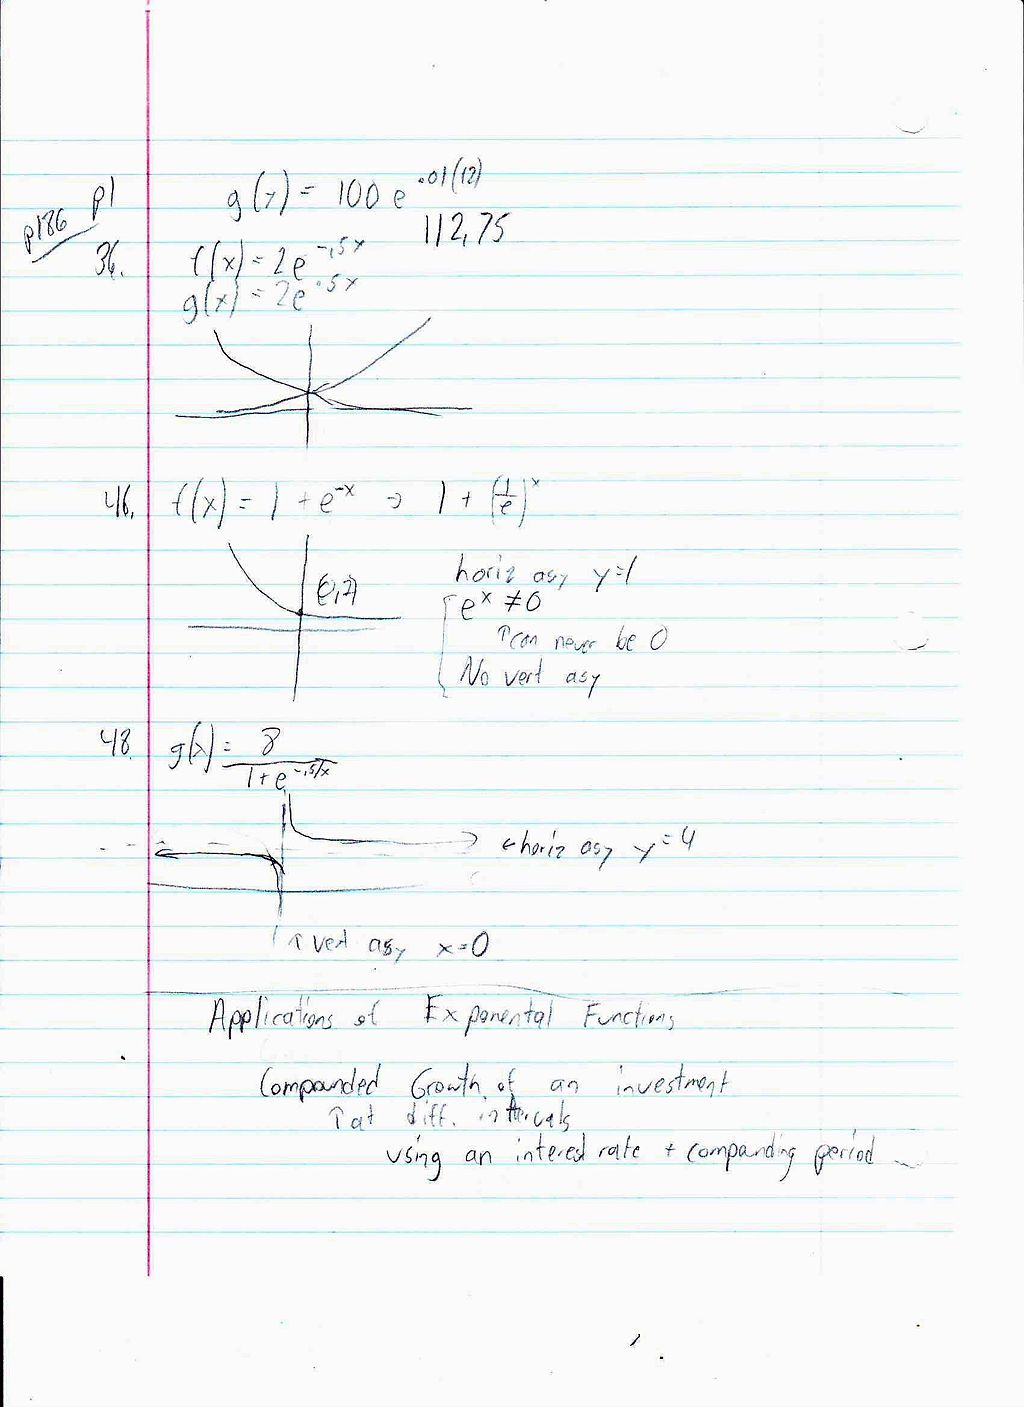 p186 p1
g(x) = 100 e^.01(12)
112,75
36. f(x) = 2e^-.5x
g(x) = 2e^.5x
46. f(x) = 1 + e^-x → 1 + (1/e)^x
(0,2)
horiz asy y=1
e^x ≠ 0
↑ can never be 0
No vert asy
48. g(x) = 8 / 1+e^-.5/x
← horiz asy y=4
↑ vert asy x=0
Applications of Exponental Functions
Compounded Growth of an investment
↑ at diff. intervals
using an interest rate + companding period